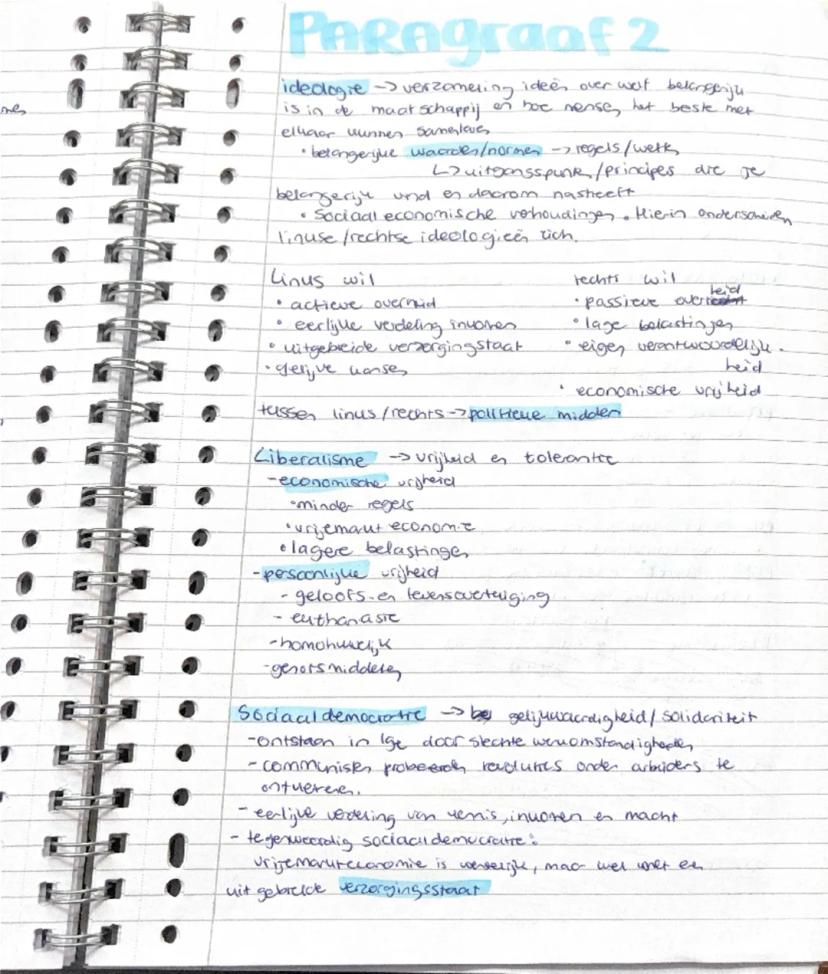 Paragraaf 2
ideologie -> verzameling ideeën over wat belangerijk
is in de maatschappij en hoe mensen het beste met
elkaar kunnen samenleven
• belangerijke waarden/normen -> regels/wetten
↳ uitgangspunt/principes die je
belangerijk vind en daarom nastreeft
• Sociaal economische verhoudingen. Hierin onderscheiden
linkse/rechtse ideologieën zich.
Links wil
• actieve overheid
• eerlijke verdeling inkomen
• uitgebreide verzorgingstaat
• gelijke kansen
rechts wil
• passieve overheid
• lage belastingen
• eigen verantwoordelijk-
heid
• economische vrijheid
tussen links/rechts -> politieke midden
Liberalisme -> vrijheid en tolerantie
- economische vrijheid
• minder regels
• vrijemarkt economie
• lagere belastingen
- persoonlijke vrijheid
- geloofs- en levensovertuiging
- euthanasie
- homohuwelijk
- genotsmiddelen
Sociaaldemocratie -> gelijkwaardigheid/solidariteit
- ontstaan in 19e door slechte werkomstandigheden
- communisten probeerden revoluties onder arbeiders te
ontketenen.
- eerlijke verdeling van kennis, inkomen en macht
- tegenwoordig sociaaldemocratie:
vrijemarkteconomie is wenselijk, maar wel met een
uitgebreide verzorgingsstaat